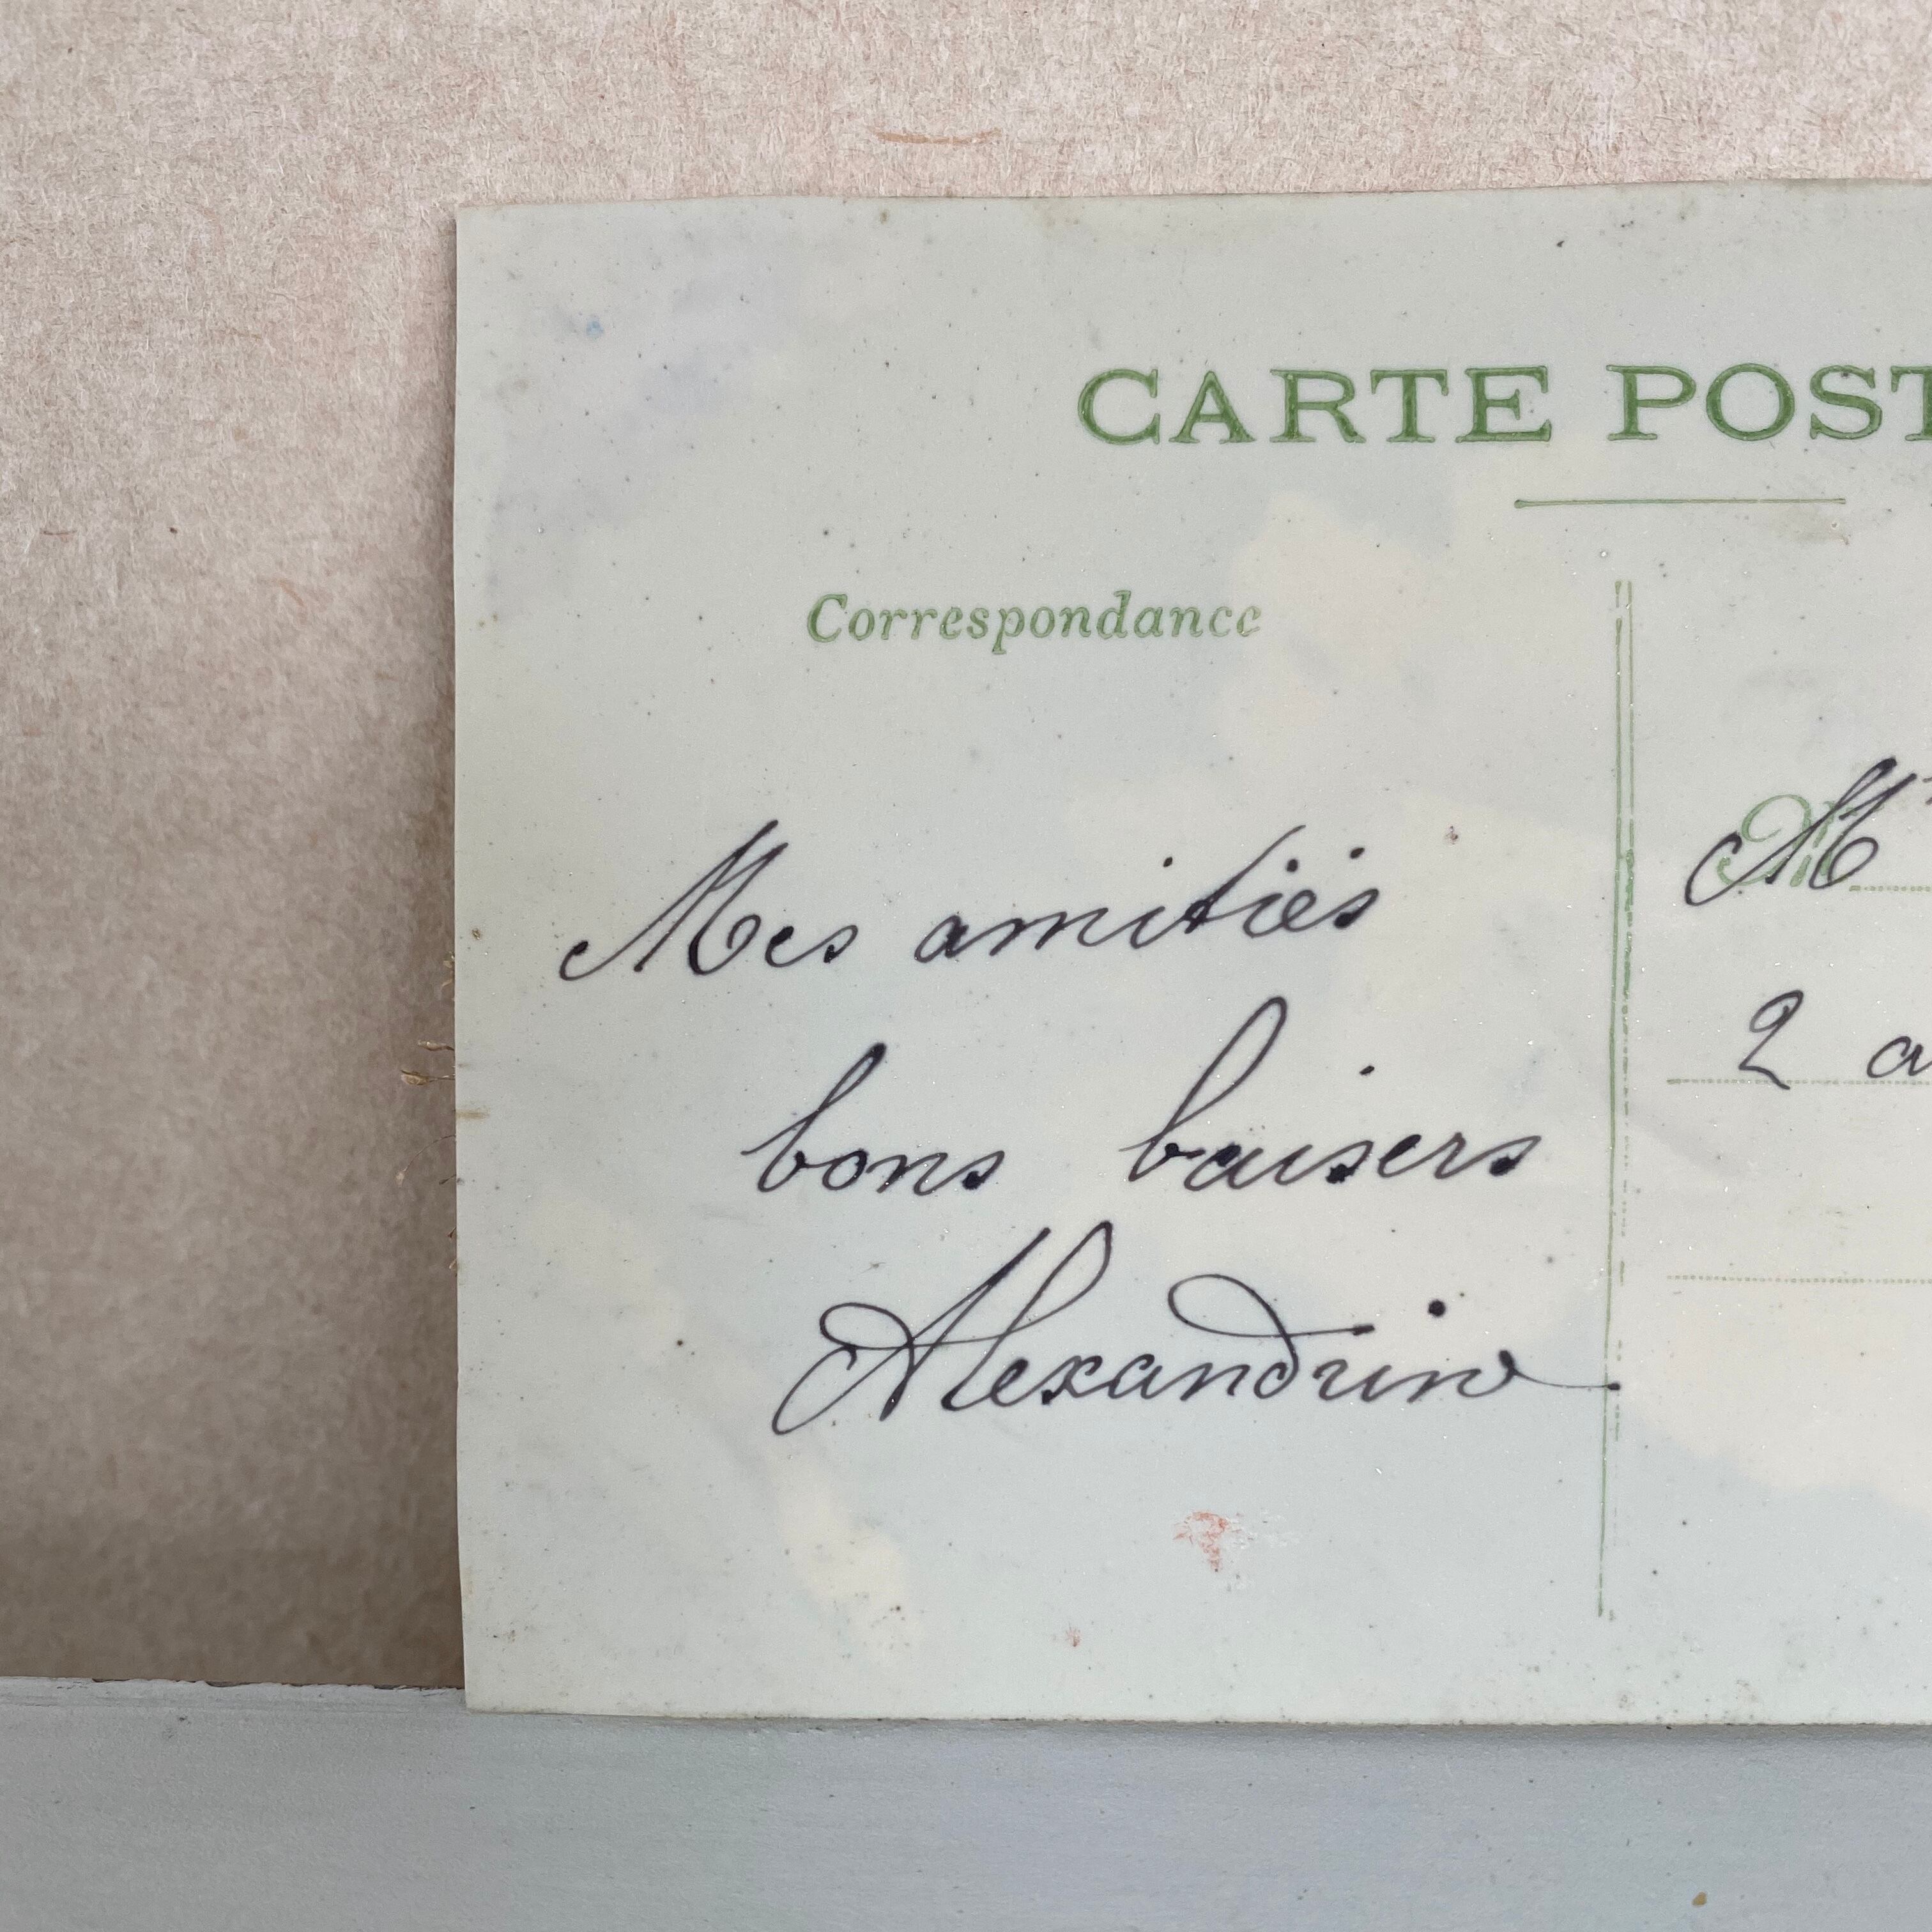 CARTE POST
Correspondance
Mes amitiés
bons baisers
Alexandrine
M
2 a